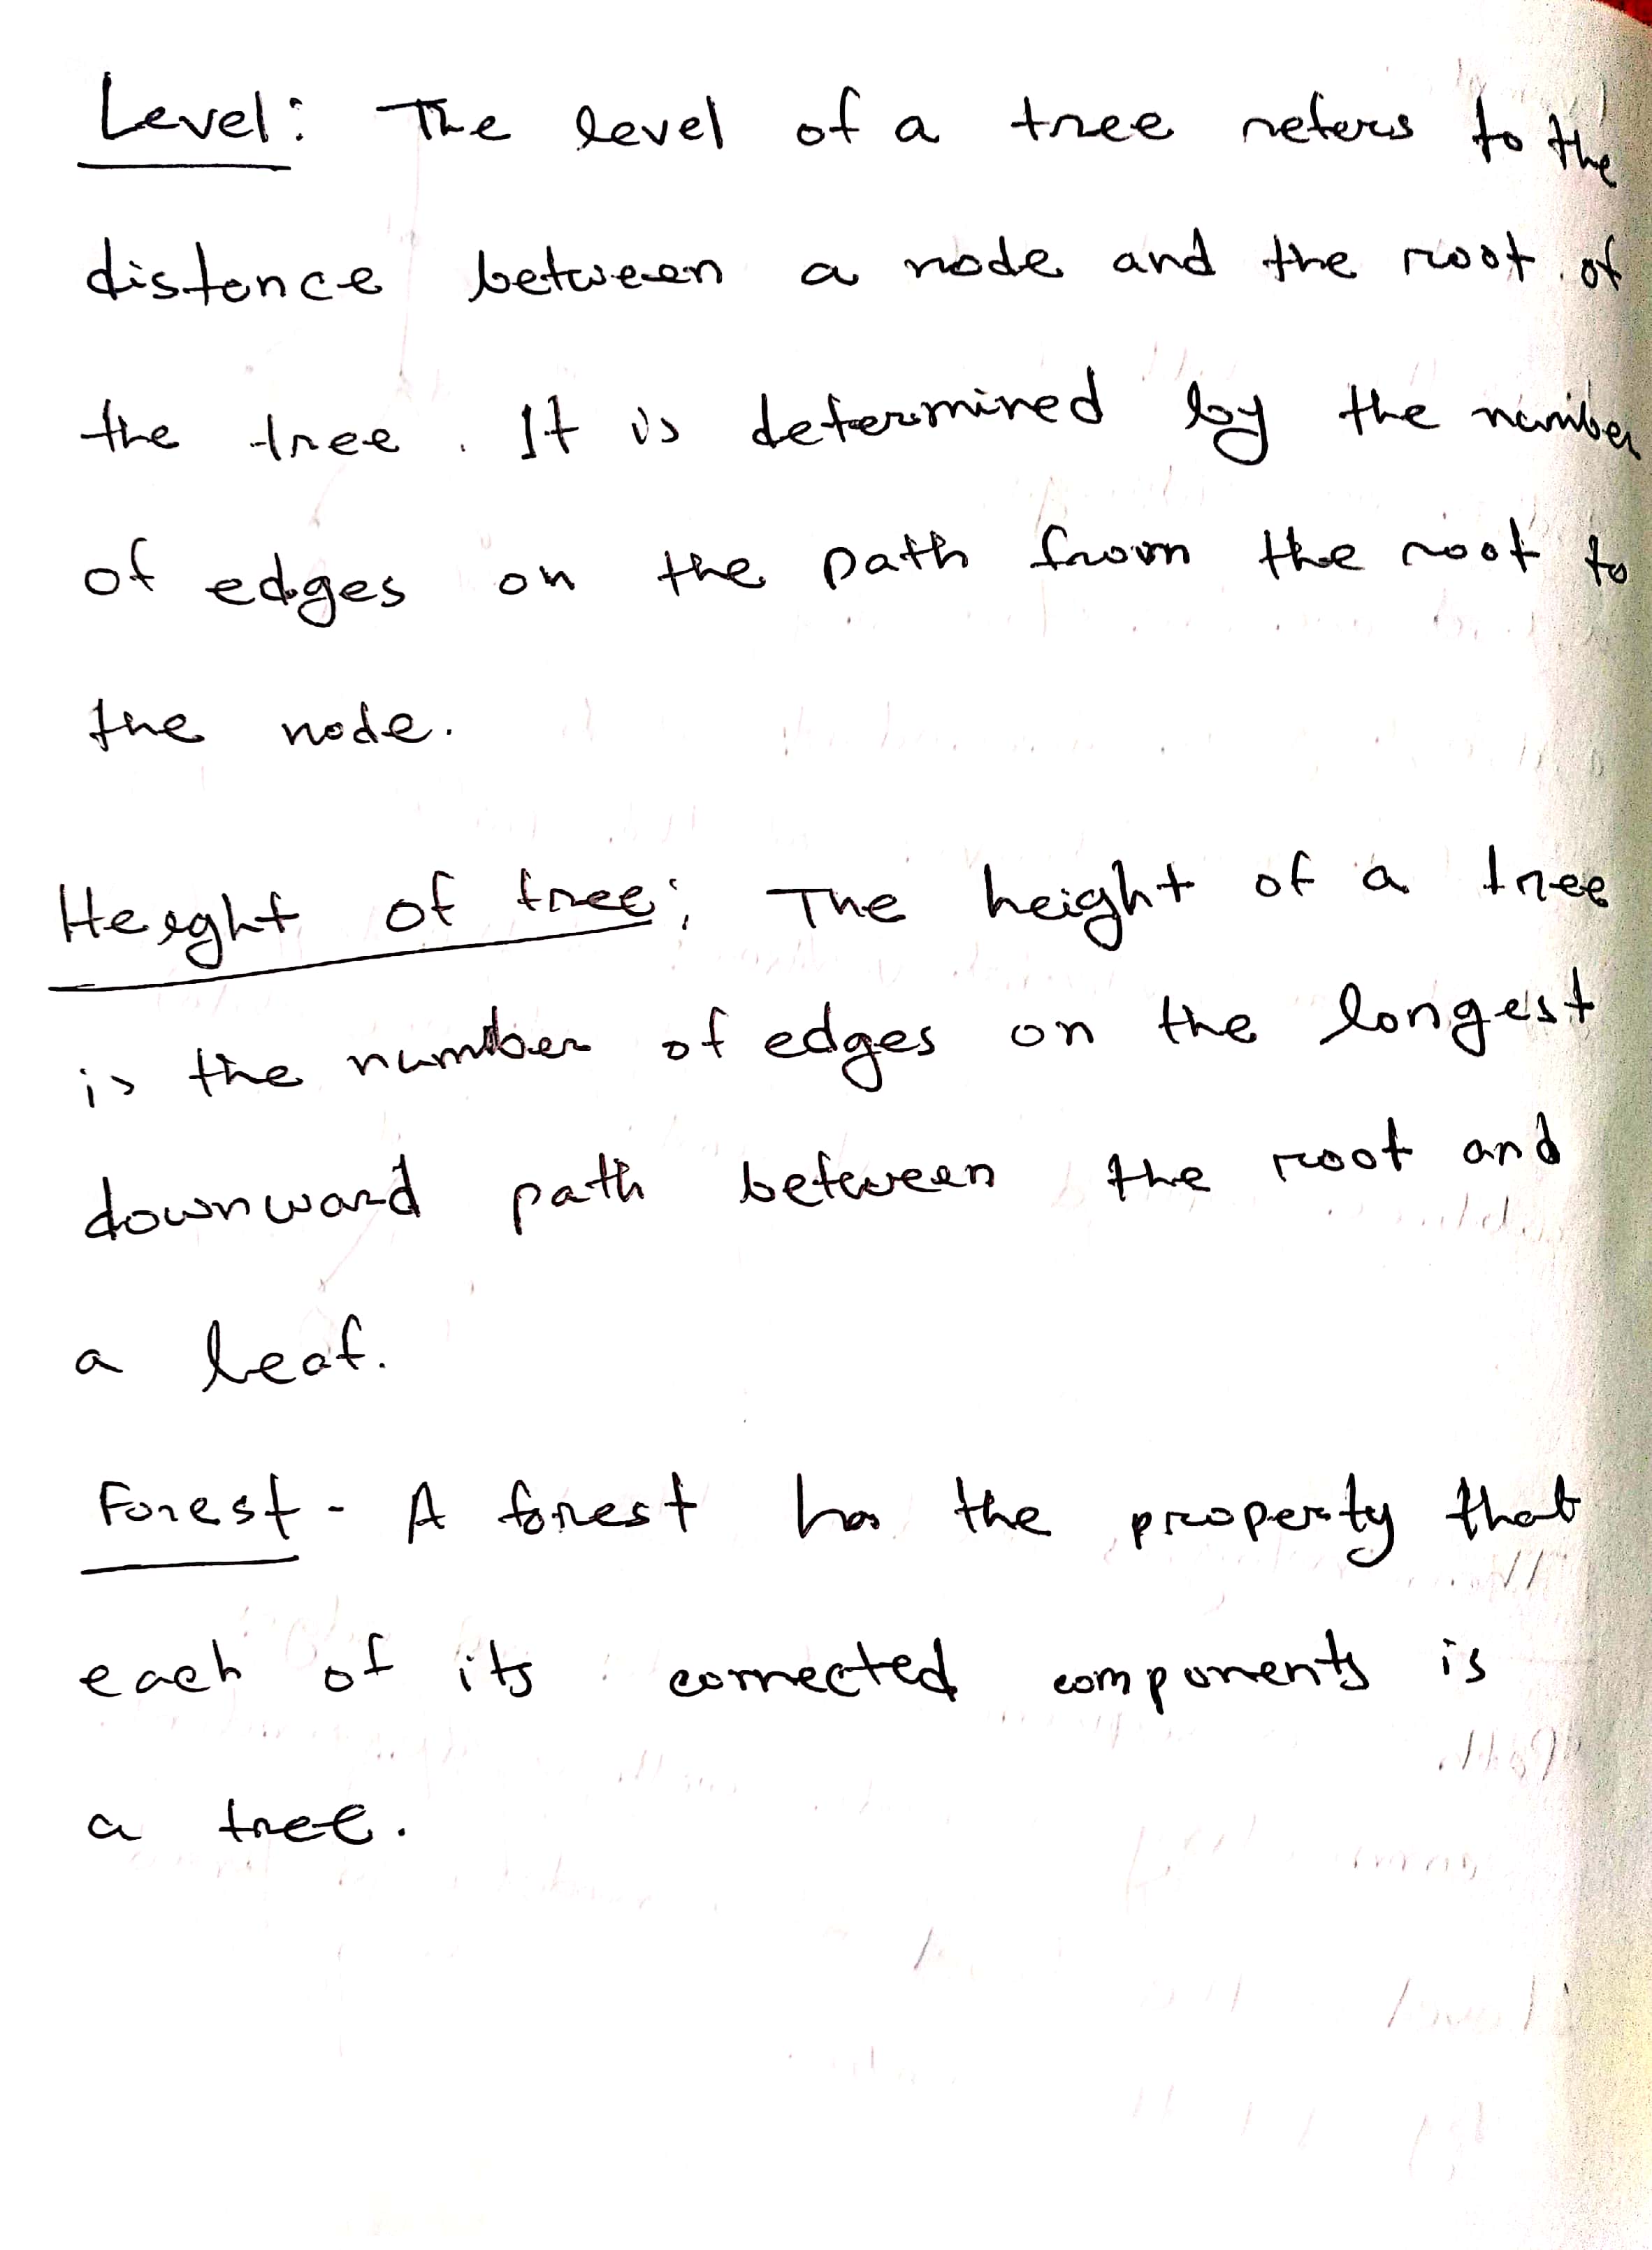 Level: The level of a tree refers to the
distance between a node and the root of
the tree. It is determined by the number
of edges on the path from the root to
the node.
Height of tree: The height of a tree
is the number of edges on the longest
downward path between the root and
a leaf.
Forest - A forest has the property that
each of its connected components is
a tree.